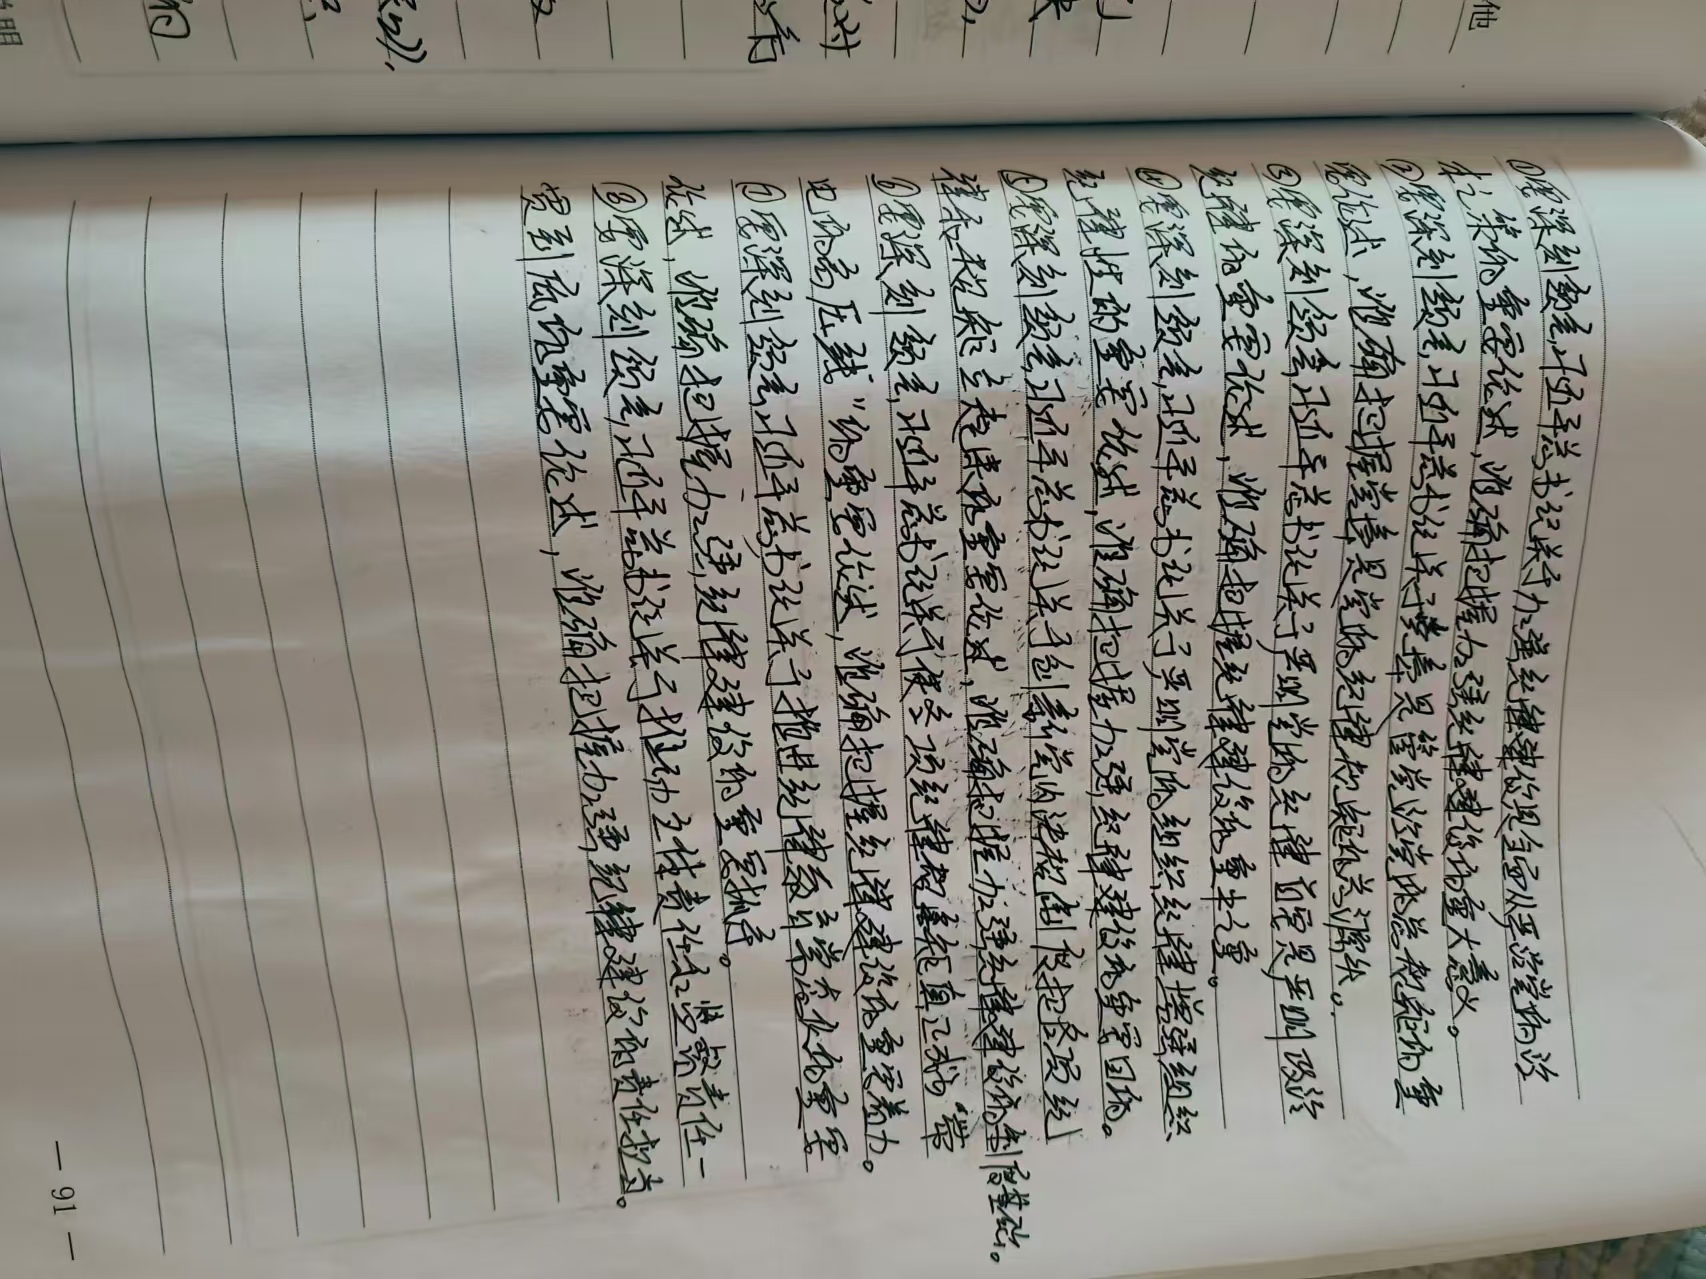 ①要深刻领会习近平总书记关于力强纪律建设是全面从严治党的治
本之策的重要论述，准确把握力强纪律建设的重大意义。
②要深刻领会习近平总书记关于党章是管党治党的总规矩的重
要论述，准确把握党章是党的纪律规矩的总源头。
③要深刻领会习近平总书记关于严明党的纪律首要是严明政治
纪律的重要论述，准确把握纪律建设的重中之重。
④要深刻领会习近平总书记关于严明党的组织纪律增强组织
纪律性的重要论述，准确把握力强纪律建设的重要目的。
⑤要深刻领会习近平总书记关于创新党内法规制度把各项纪
律和规矩立起来的重要论述，准确把握力强纪律建设的制度基础。
⑥要深刻领会习近平总书记关于使各项纪律规矩真正成为“带
电的高压线”的重要论述，准确把握纪律建设的重要着力。
⑦要深刻领会习近平总书记关于推进纪律教育常态化的重要
论述，准确把握力强纪律建设的重要抓手。
⑧要深刻领会习近平总书记关于推动主体责任、监督责任一
贯到底的重要论述，准确把握力强纪律建设的责任担当。
— 91 —